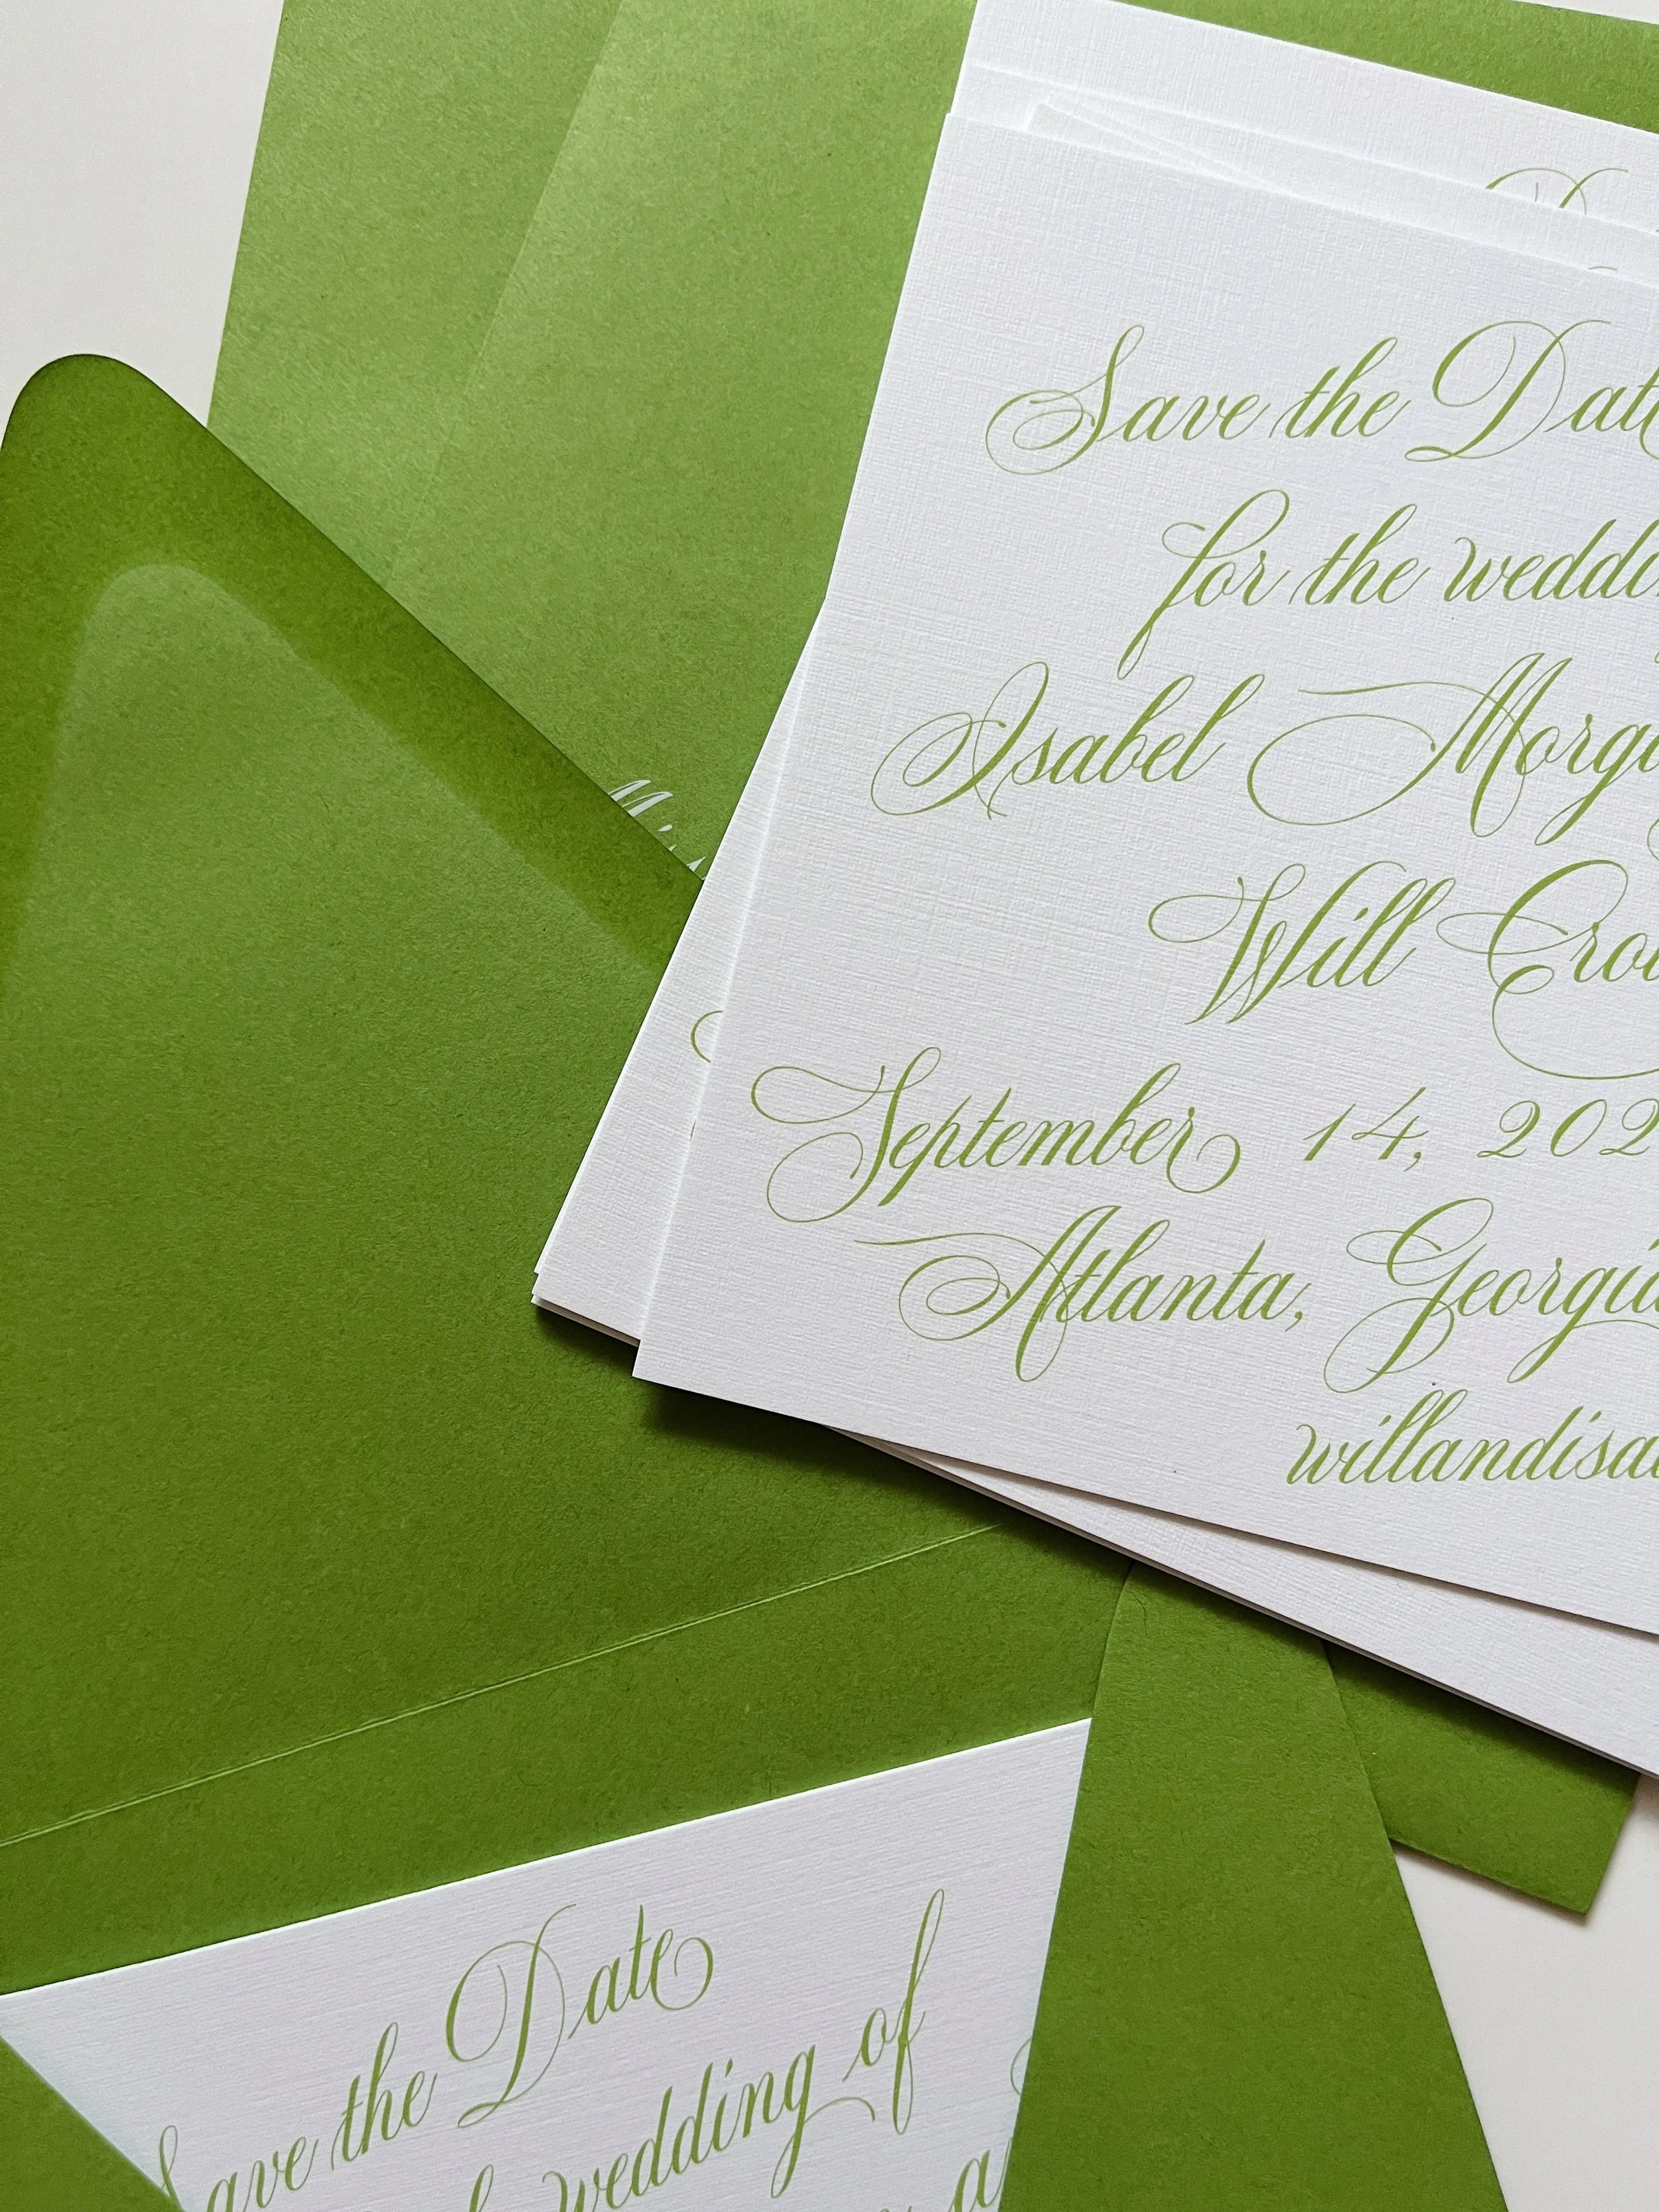 Save the Date
for the weddi
Isabel Morga
Will Cro
September 14, 202
Atlanta, Georgia
willandisa
Save the Date
wedding of